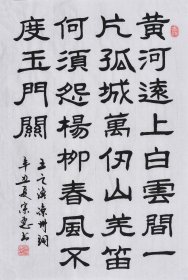 黃河遠上白雲間一
片孤城萬仞山羌笛
何須怨楊柳春風不
度玉門關
王之渙涼州詞
辛丑夏宗